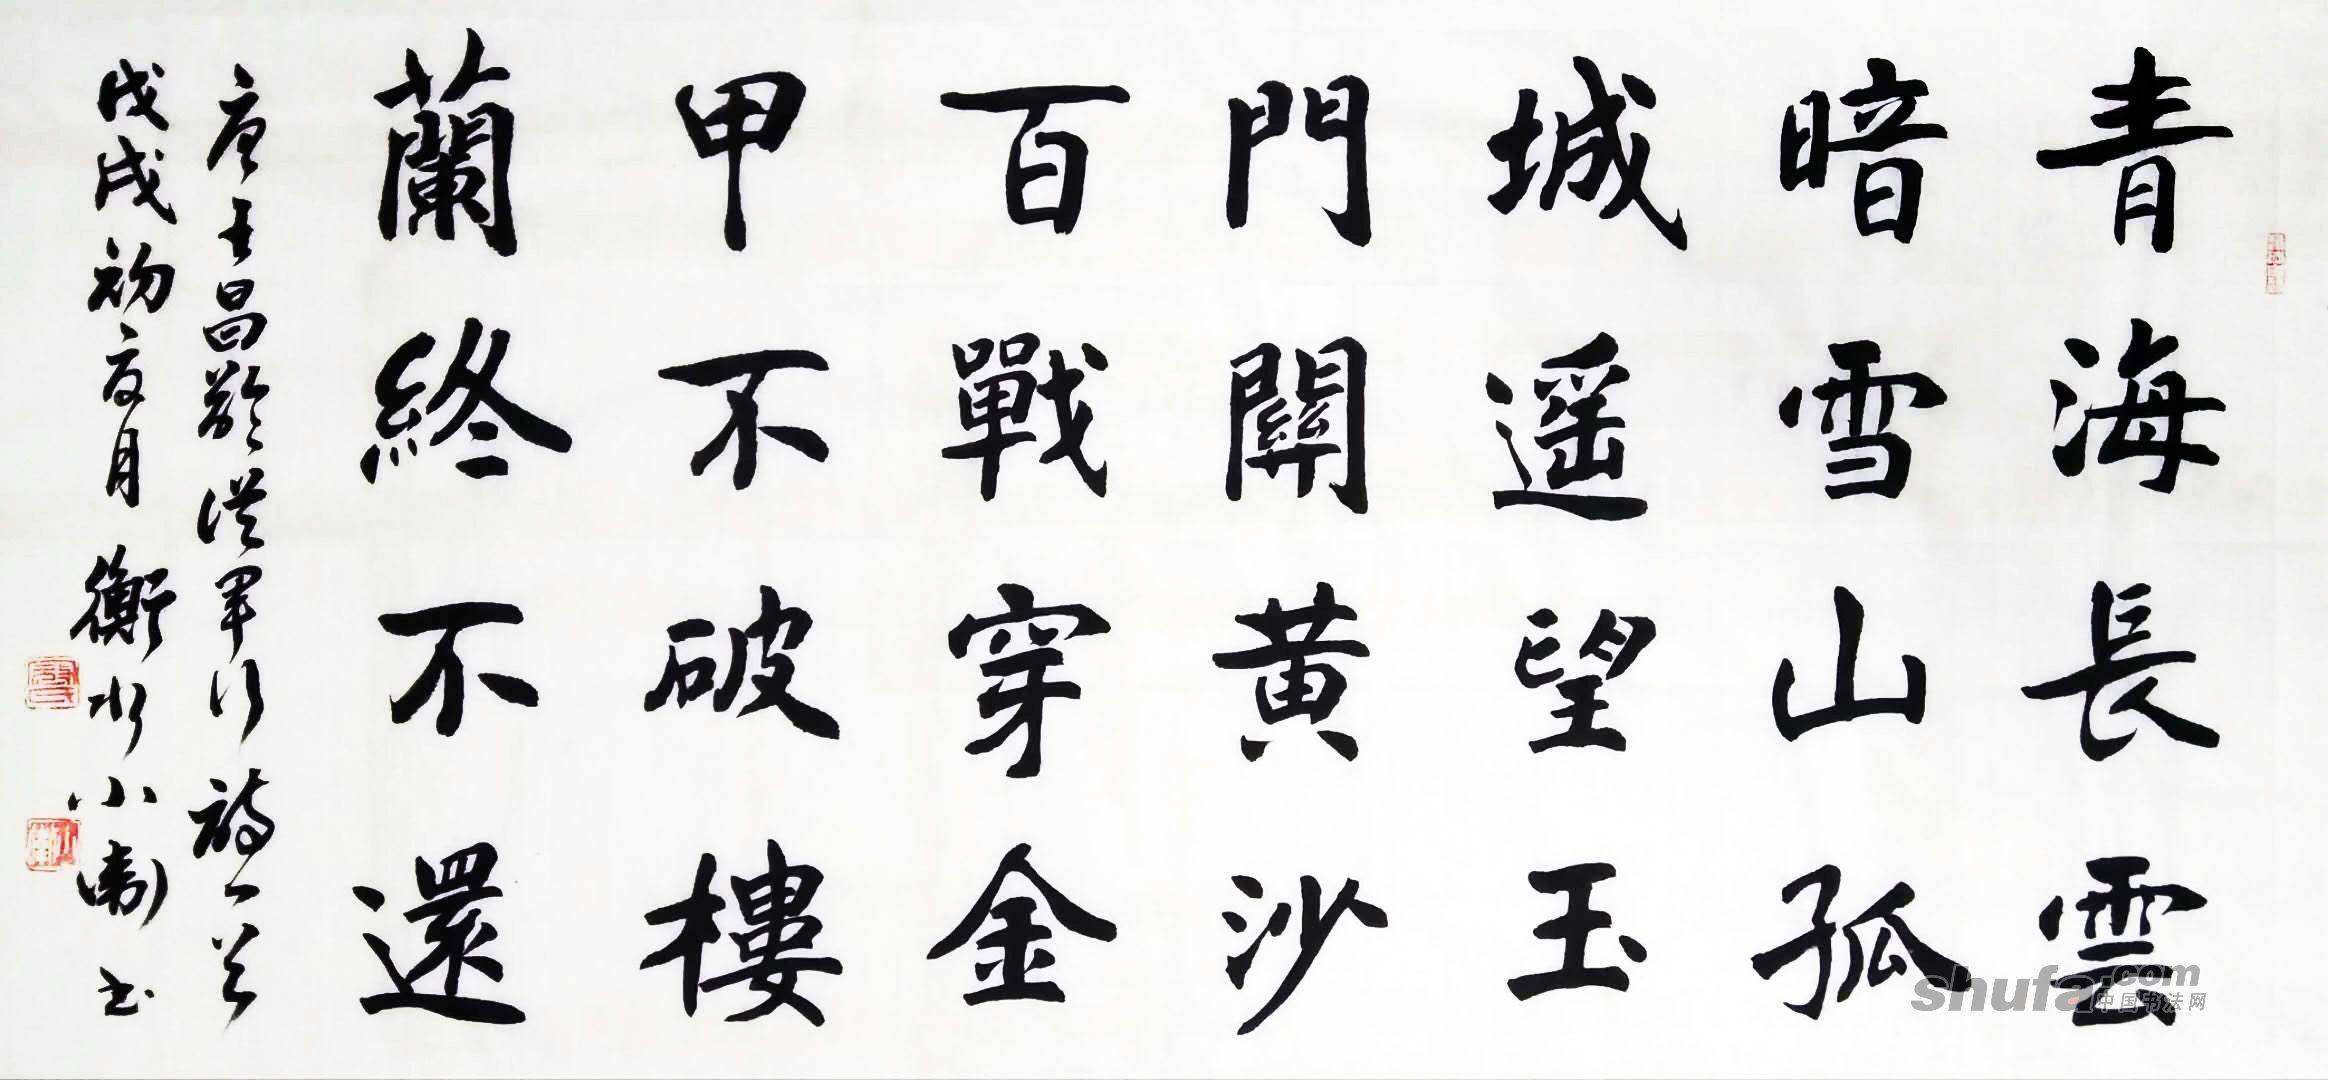 青海長雲
暗雪山孤
城遥望玉
門關黄沙
百戰穿金
甲不破樓
蘭終不還
唐王昌齡從軍行詩一首
戊戌初夏月 衡水小衛书
shufa.com
中国书法网